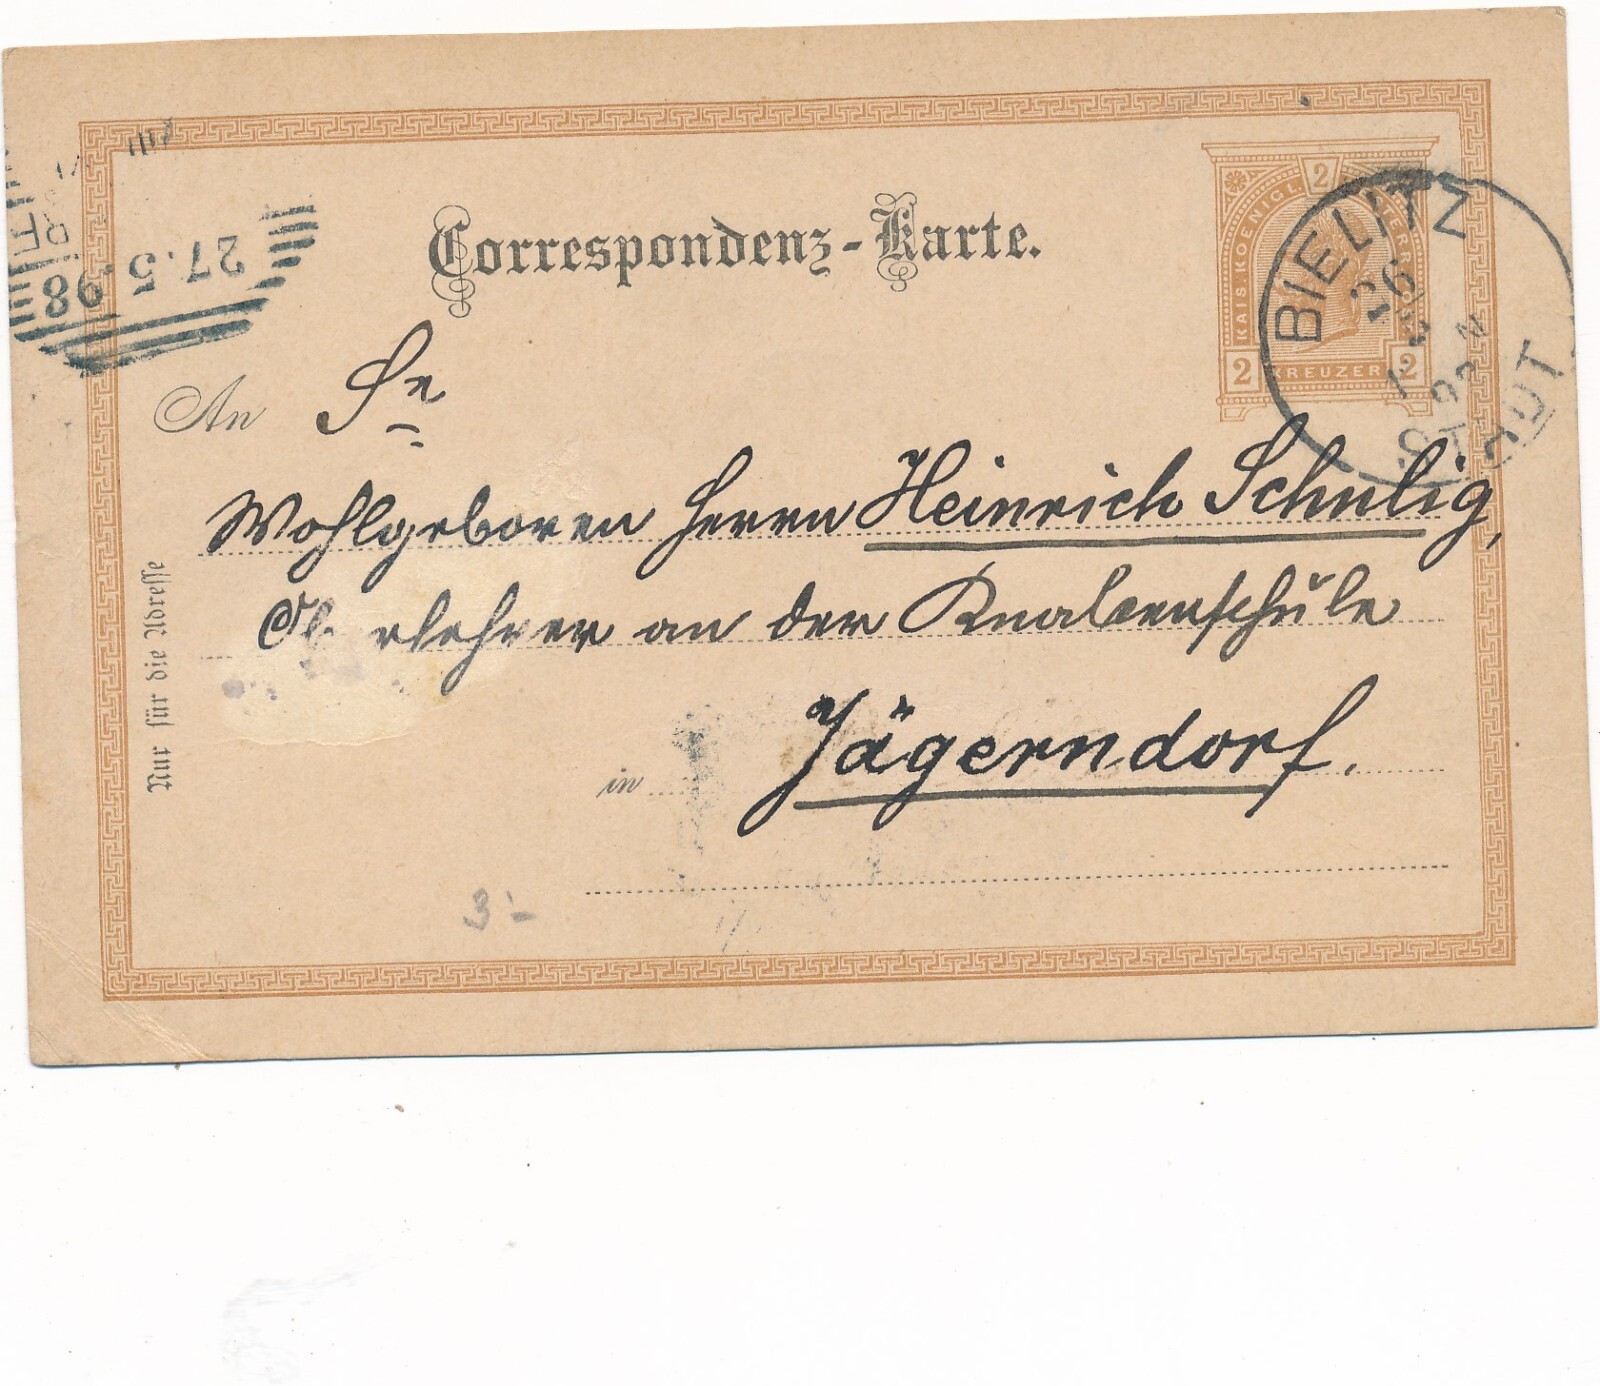 Correspondenz-Karte.
KAIS. KOENIGL.
2
2 KREUZER 2
BIELITZ
26
STADT
27.5.98
An Sr
Wohlgeboren Herrn Heinrich Schulig,
Oberlehrer an der Knabenschule
in Jägerndorf.
Nur für die Adresse
3'-